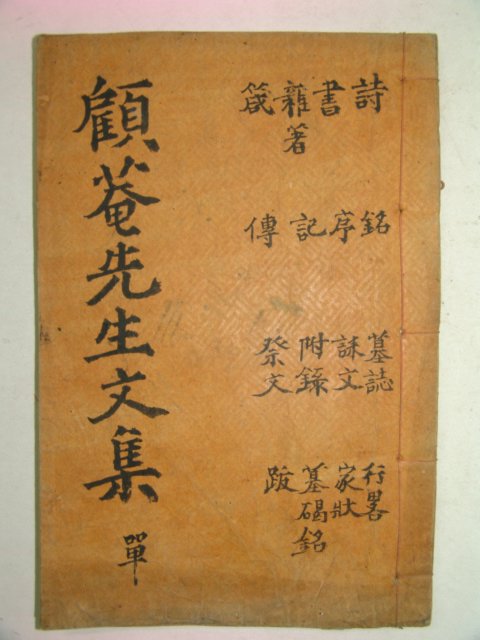 詩 銘 墓誌 行畧
書 序 誄文 家狀
雜著 記 附錄 墓碣銘
箴 傳 祭文 跋
顧菴先生文集 單